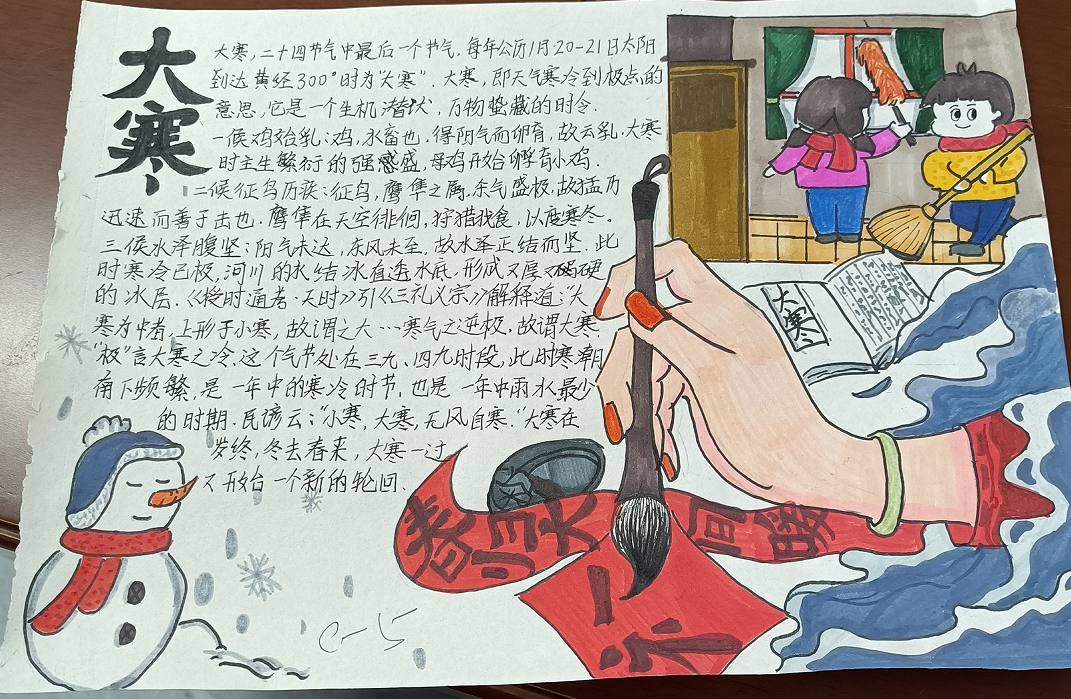 大寒
大寒,二十四节气中最后一个节气.每年公历1月20-21日太阳
到达黄经300°时为"大寒".大寒,即天气寒冷到极点的
意思,它是一个生机潜伏,万物蛰藏的时令.
一候鸡始乳:鸡,水畜也,得阳气而卵育,故云乳.大寒
时主生繁衍的强感盛,母鸡开始孵育小鸡.
二候征鸟厉疾:征鸟,鹰隼之属.杀气盛极,故猛厉
迅速而善于击也.鹰隼在天空徘徊,狩猎找食,以度寒冬。
三候水泽腹坚:阳气未达,东风未至,故水泽正结而坚.此
时寒冷已极,河川的水结冰直透水底,形成又厚又硬
的冰层.《授时通考·天时》引《三礼义宗》解释道:"大
寒为中者,上形于小寒,故谓之大…寒气之逆极,故谓大寒.
"极"言大寒之冷.这个气节处在三九、四九时段,此时寒潮
南下频繁,是一年中的寒冷时节,也是一年中雨水最少
的时期.民谚云:"小寒,大寒,无风自寒."大寒在
岁终,冬去春来,大寒一过
又开始一个新的轮回.
大寒
春归大 间暖
C-5